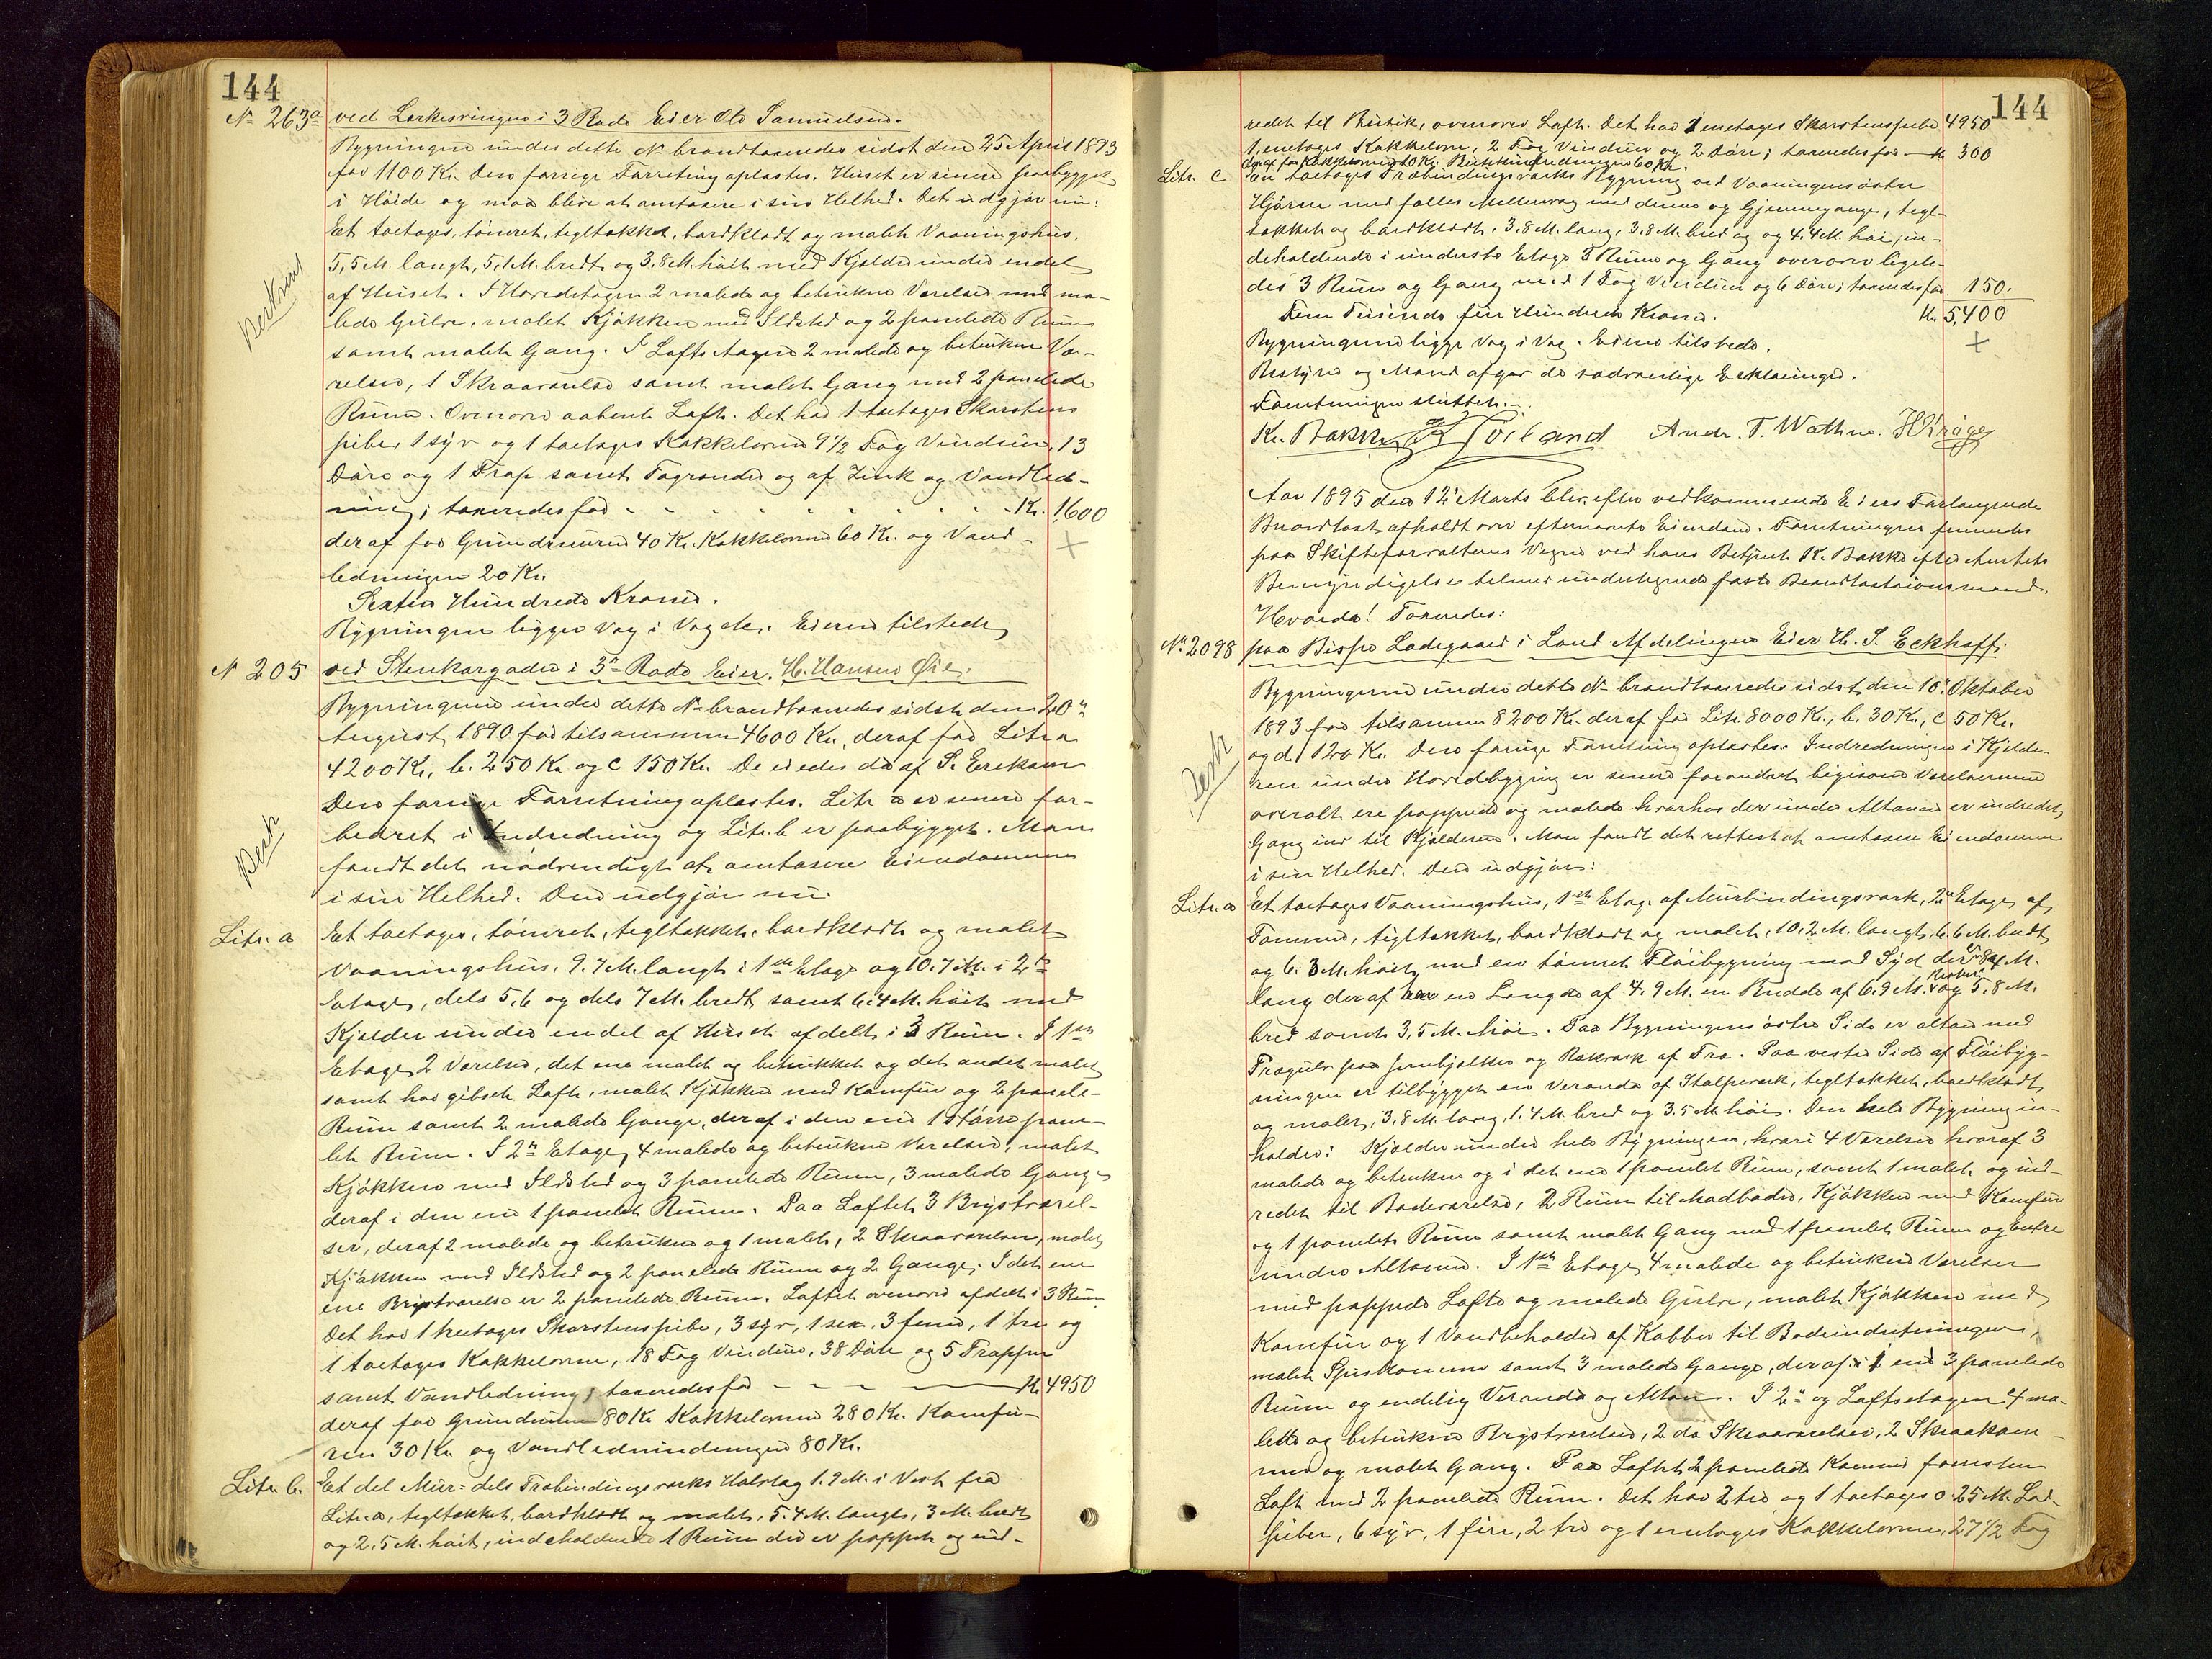 144
No 263a ved Lærkesvingen i 3 Rode Eier Ole Samuelsen.
Bygningen under dette No brandtaxeredes sidst den 25 April 1893
for 1100 Kr. Den forrige Forretning oplæstes. Huset er senere paabygget
i Høide og maa blive at omtaxere i sin Helhed. Det udgjør nu:
Et toetages, tømret, tegltækket, bordklædt og malet Vaaningshus,
5,5 M. langt, 5,1 M. bredt og 3,8 M. høit med Kjelder under endel
Berkrivt
af Huset. I Hovedetagen 2 malede og betrukne Værelser med ma-
lede Gulve, malet Kjøkken med Ildsted og 2 panelede Rum
samt malet Gang. I Loftsetagen 2 malede og betrukne Væ-
relser, 1 Skraaværelse samt malet Gang med 2 panelede
Rum. Ovenover aabent Loft. Det har 1 toetages Skorstens
pibe, 1 syv og 1 toetages Kakkelovne 9 1/2 Fag Vinduer, 13
Døre og 1 Trap samt Tagrender og af Zink og Vandled-
ning; taxeredes for - - - - Kr. 1,600
deraf for Grundmuren 40 Kr. Kakkelovne 60 Kr. og Vand-
ledningen 20 Kr.
Sexten Hundrede Kroner.
Bygningen ligger Væg i Væg etc. Eieren tilstede
No 205 ved Stenkargaden i 3die Rode Eier. H. Hansen Øie.
Bygningerne under dette No brandtaxeredes sidst den 20de
August 1890 for tilsammen 4600 Kr., deraf for Litr a
4200 Kr, b. 250 Kr og c 150 Kr. De eiedes da af S. Eriksen
Den forrige Forretning oplæstes. Litr a er senere for-
bedret i Indredning og Litr. b er paabygget. Man
Besk
fandt det nødvendigt at omtaxere Eiendommen
i sin Helhed. Den udgjør nu:
Litr. a Et toetages, tømret, tegltækket, bordklædt og malet
Vaaningshus. 9.7 M. langt i 1ste Etage og 10.7 M. i 2den
Etage, dels 5,6 og dels 7 M. bredt samt 6,4 M. høit med
Kjelder under endel af Huset afdelt i 3 Rum. I 1ste
Etage 2 Værelser, det ene malet og betrukket og det andet malet
samt har gibset Loft, malet Kjøkken med Komfur og 2 panele-
Rum samt 2 malede Gange, deraf i den ene 1 større pane-
let Rum. I 2den Etage 4 malede og betrukne Værelser, malet
Kjøkken med Ildsted og 3 panelede Rum, 3 malede Gange
deraf i den ene 1 panelet Rum. Paa Loftet 3 Brystværel-
ser, deraf 2 malede og betrukne og 1 malet, 2 Skraaværelser, malet
Kjøkken med Ildsted og 2 panelede Rum og 2 Gange. I det ene
ene Brystværelse er 2 panelede Rum. Loftet ovenover afdelt i 3 Rum
Det har 1 treetages Skorstenspibe, 3 syv, 1 sex, 3 fem, 1 tre og
1 toetages Kakkelovne, 18 Fag Vinduer, 38 Døre og 5 Trapper
samt Vandledning; taxeredes for - - - - Kr 4950
deraf for Grundmuren 80 Kr Kakkelovne 280 Kr. Komfu-
ren 30 Kr. og Vandledningen 80 Kr.
Litr. b. Et del Mur- dels Træbindingsværks Halvtag 1.9 M. i Vest fra
Litr. a, tegltækket, bordklædt og malet, 5.4 M. langt, 3 M. bredt
og 2,5 M. høit, indeholdende 1 Rum der er pappet og ind-
144
redet til Butik, ovenover Loft. Det har 1 enetages Skorstenspibe 4950
1 enetages Kakkelovn, 2 Fag Vinduer og 2 Døre; taxeredes for - Kr 300
deraf for Kakkelovnen 10 Kr. Butikindredningen 60 Kr.
Litr. c En toetages Træbindingsværks Bygning ved Vaaningens østre
Hjørne med fælles Mellemvæg med denne og Gjennemgange, tegl-
tækket og bordklædt, 3.8 M. lang, 3,8 M. bred og og 4,4 M. høi, in-
deholdende i underste Etage 3 Rum og Gang ovenover ligele-
des 3 Rum og Gang med 1 Fag Vinduer og 6 Døre; taxeredes for 150.
Fem Tusinde fire Hundrede Kroner. Kr. 5,400
Bygningerne ligge Væg i Væg. Eieren tilstede.
Bestyrer og Mænd afgav de sædvanlige Erklæringer.
Forretningen sluttet.
Kr. Bakke Toiland Andr. T. Wathne. H Krøge
Aar 1895 den 12te Marts blev efter vedkommende Eiers Forlangende
Brandtaxt afholdt over eftermeldte Eiendom. Forretningen fremmedes
paa Skifteforvalterens Vegne ved hans Betjent K. Bakke efter Amtets
Bemyndigelse tilmed undertegnede faste Brandtaxtationsmænd.
Hvorda! Taxeredes:
No 2098 paa Bispe Ladegaard i Land Afdelingen Eier H. S. Eckhoff.
Bygningerne under dette No brandtaxeredes sidst den 10de Oktober
1893 for tilsammen 8200 Kr. deraf for Litr. 8000 Kr., b. 30 Kr., c 50 Kr.
og d 120 Kr. Den forrige Forretning oplæstes. Indredningen i Kjelde-
ren under Hovedbygning er senere forandret ligesom Værelserne
Besk
overalt ere pappede og malede hvorhos der under Altanen er indredet
Gang ind til Kjelderen. Man fandt det rettest at omtaxere Eiendommen
i sin Helhed. Den udgjør:
Litr. a Et toetages Vaaningshus, 1ste Etage af Murbindingsværk, 2den Etage af
Tømmer, tegltækket, bordklædt og malet, 10,2 M. langt, 6,6 M. bredt
og 6.3 M. høit, med en tømret Fløibygning mod Syd der er 8,4 M.
lang deraf har en Længde af 4.9 M. en Bredde af 6.9 M. og Resten 5.8 M.
bred samt 3,5 M. høi. Paa Bygningens østre Side er altan med
Trægulv paa Jernbjelker og Rækværk af Træ. Paa vestre Side af Fløibyg-
ningen er tilbygget en Veranda af Stolpeværk, tegltækket, bordklædt
og malet, 3,8 M. lang, 1.4 M. bred og 3.5 M. høi. Den hele Bygning in-
holder: Kjelder under hele Bygningen, hvori 4 Værelser hvoraf 3
malede og betrukne og i det ene 1 panelet Rum, samt 1 malet og ind-
redet til Badeværelse, 2 Rum til Madboder, Kjøkken med Komfur
og 1 panelet Rum samt malet Gang med 1 panelet Rum og Entre
under Altanen. I 1ste Etage 4 malede og betrukne Værelser
med pappede Lofte og malede Gulve, malet Kjøkken med
Komfur og 1 Vandbeholder af Kobber til Badeindretningen,
malet Spiskammer samt 3 malede Gange, deraf i 1 end 3 panelede
Rum og endelig Veranda og Altan. I 2den og Loftsetagen 4 ma-
lede og betrukne Brystværelser, 2 do Skraaværelser, 2 Skraakam-
mer og malet Gang. Paa Loftet 2 panelede Kammer forresten
Loft med 2 panelede Rum. Det har 2 tre og 1 toetages 0.25 M. Lad-
piber, 6 syv, 1 fire, 2 tre og 1 enetages Kakkelovne, 27 1/2 Fag